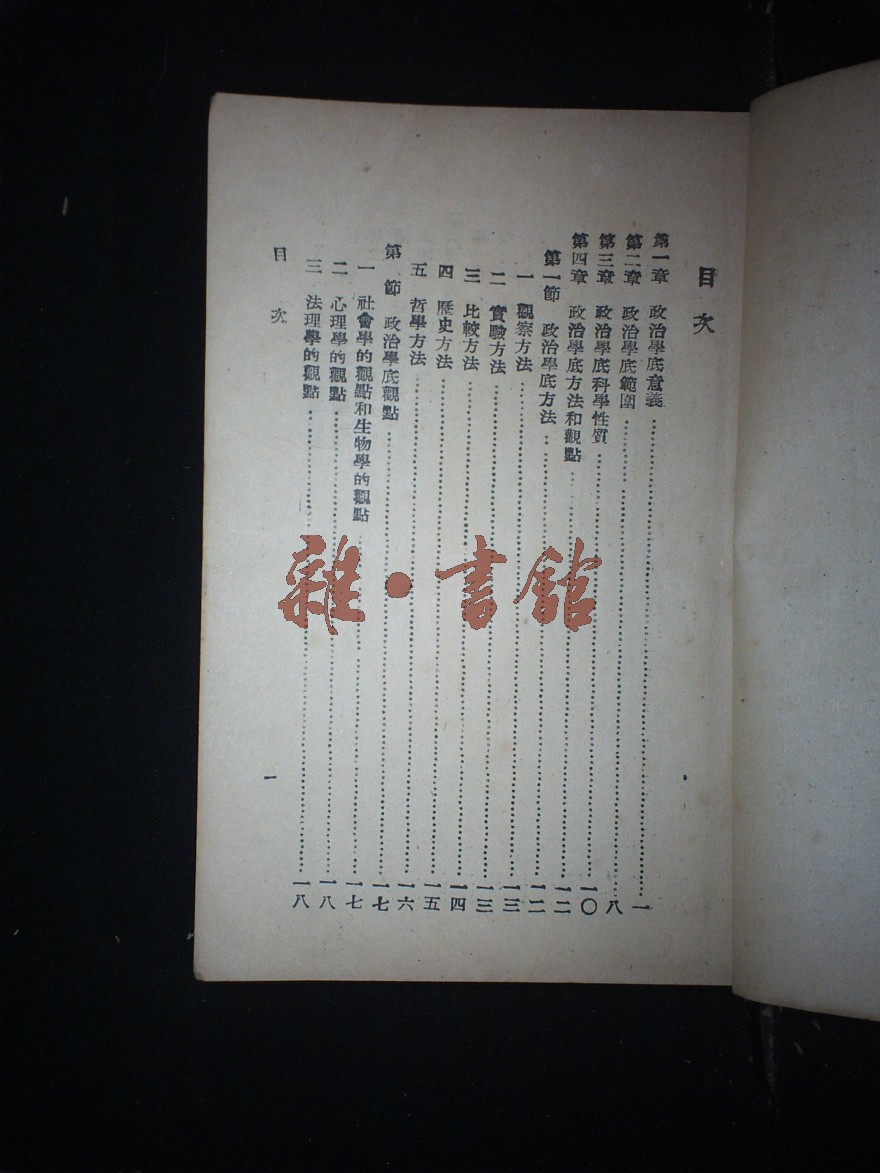 目次
第一章 政治學底意義……一
第二章 政治學底範圍……八
第三章 政治學底科學性質……一〇
第四章 政治學底方法和觀點……一二
第一節 政治學底方法……一二
一 觀察方法……一三
二 實驗方法……一三
三 比較方法……一四
四 歷史方法……一五
五 哲學方法……一六
第 節 政治學底觀點……一七
一 社會學的觀點和生物學的觀點……一七
二 心理學的觀點……一八
三 法理學的觀點……一八
目次
一
雜·書館